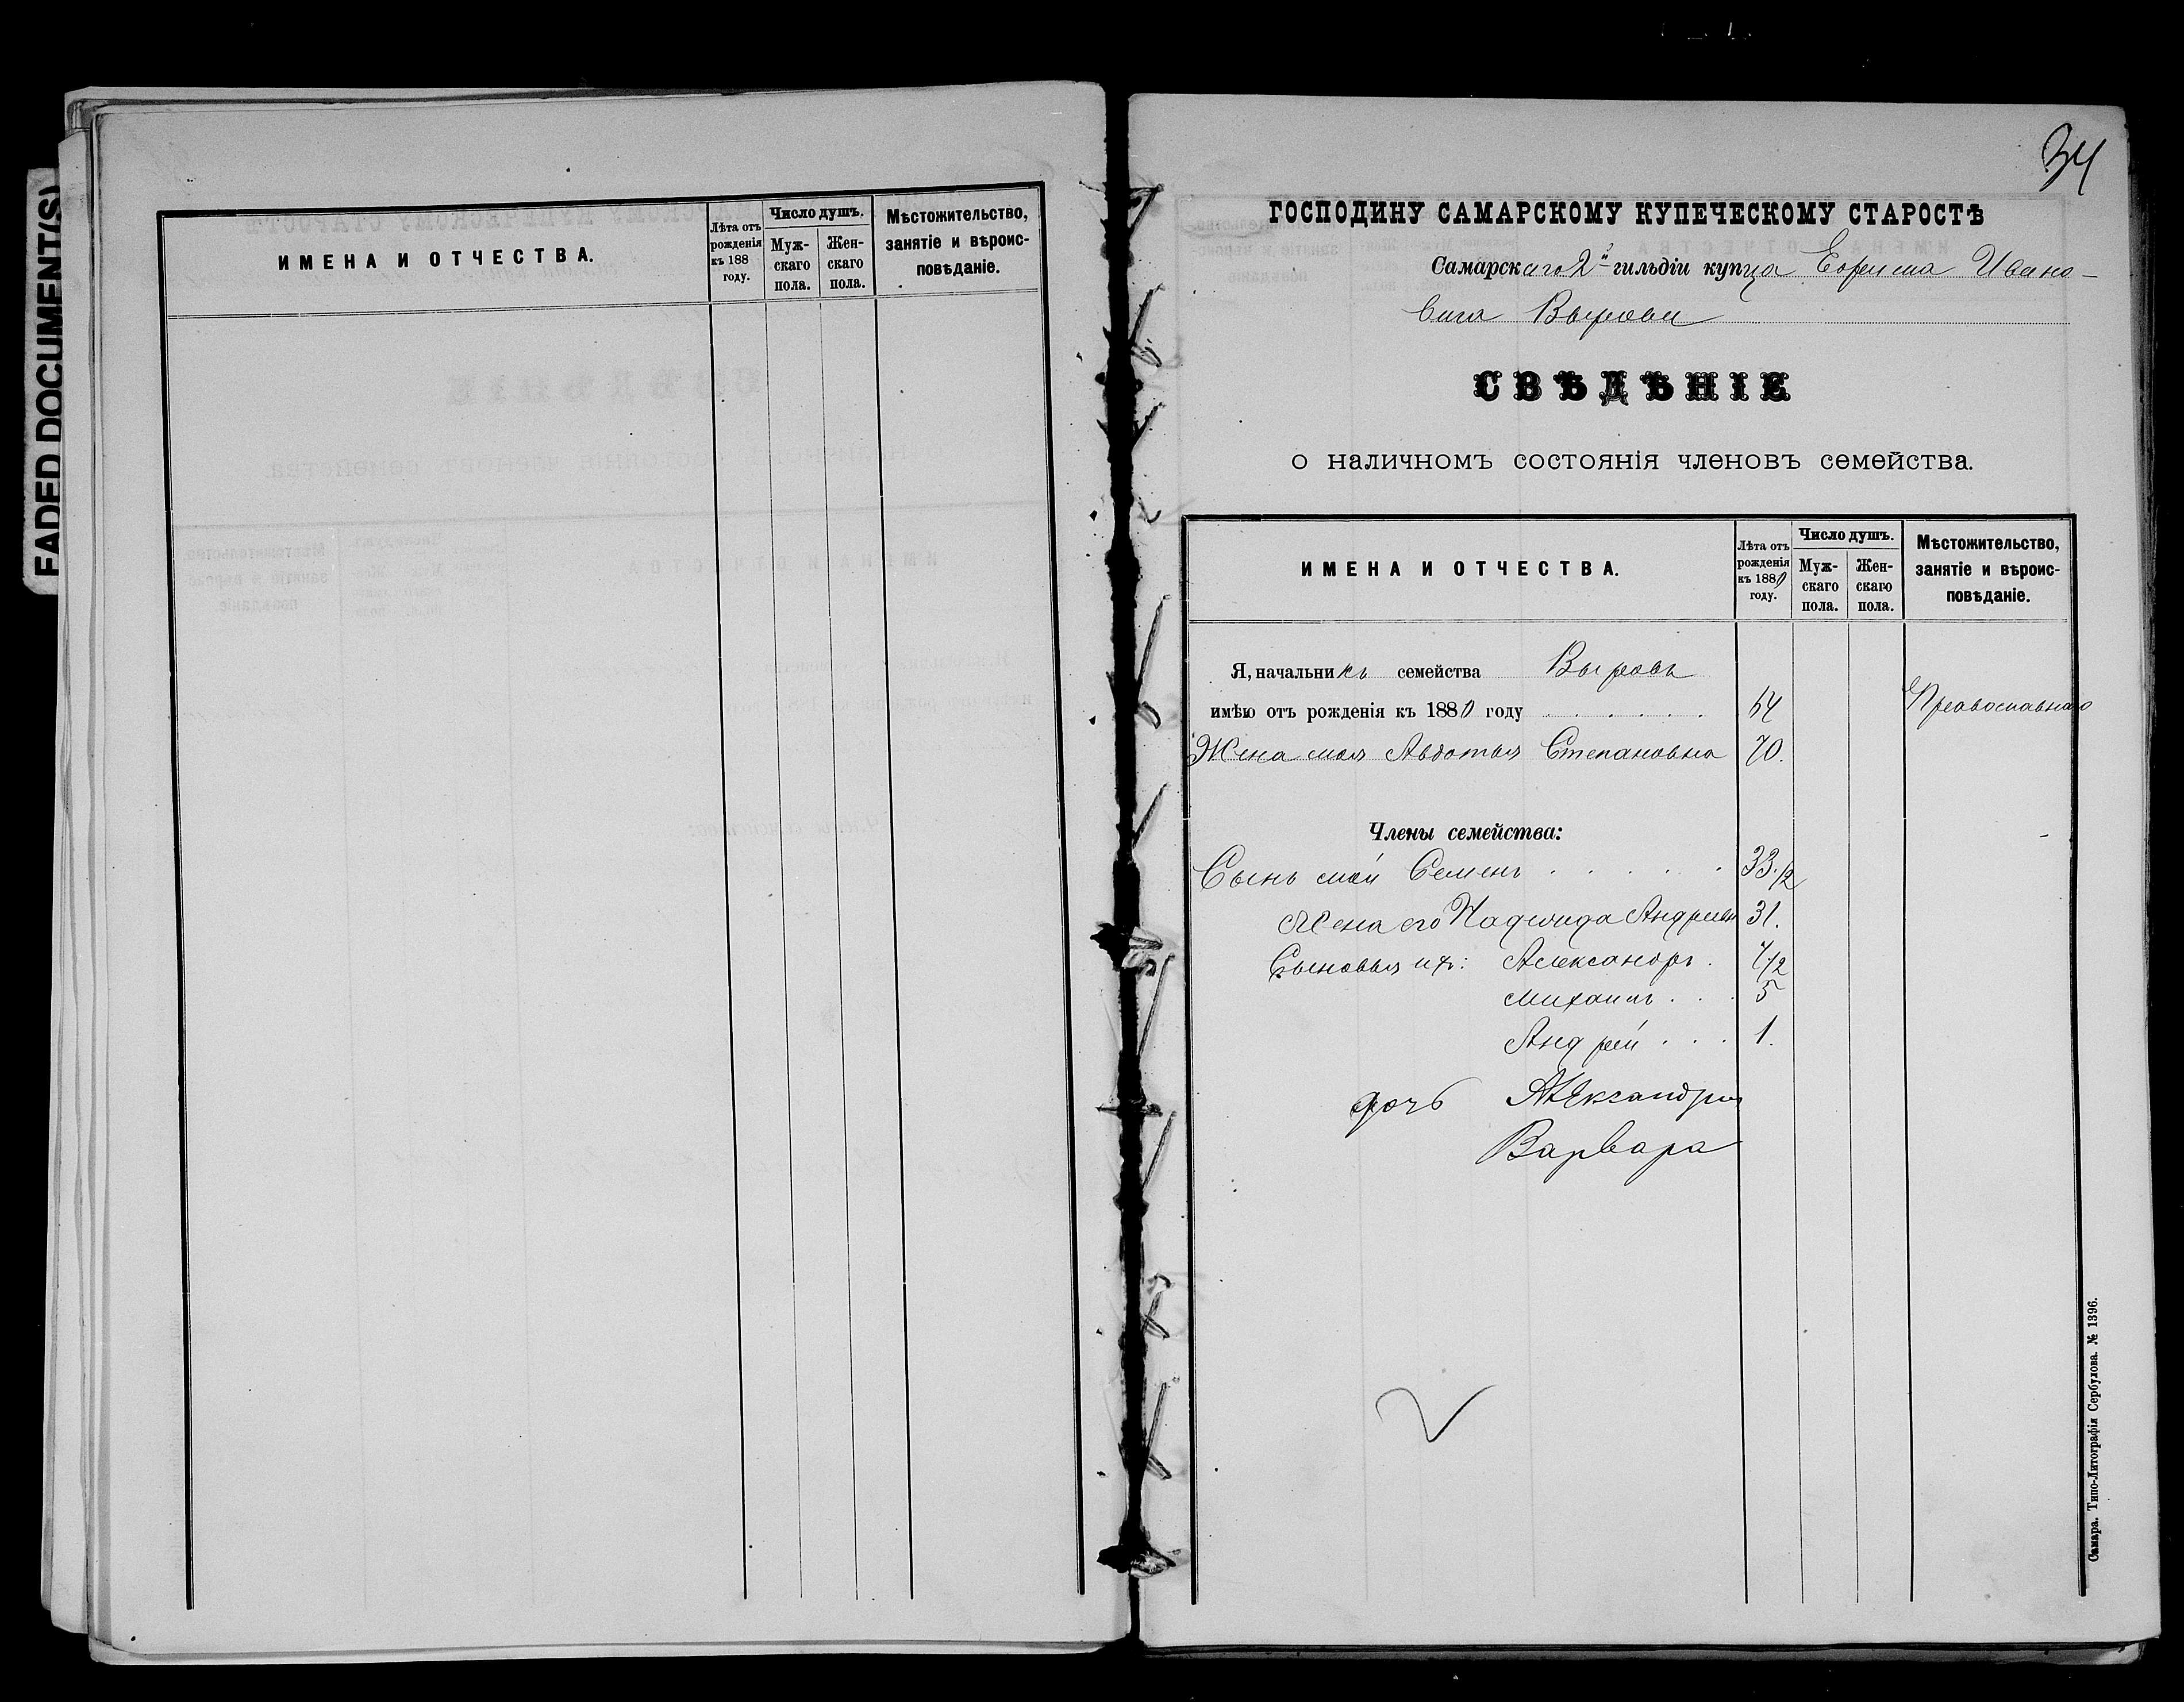 FADED DOCUMENT(S)
ИМЕНА И ОТЧЕСТВА.
Лѣта отъ рожденія къ 188 году.
Число душъ.
Мужскаго пола.
Женскаго пола.
Мѣстожительство, занятіе и вѣроисповѣданіе.
34
ГОСПОДИНУ САМАРСКОМУ КУПЕЧЕСКОМУ СТАРОСТѢ
Самарскаго 2й гильдіи купца Ефима Ивано-
вича Вырова
СВѢДѢНІЕ
о наличномъ состоянія членовъ семейства.
ИМЕНА И ОТЧЕСТВА.
Лѣта отъ
рожденія
къ 1880
году.
Число душъ.
Муж-
скаго
пола.
Жен-
скаго
пола.
Мѣстожительство,
занятіе и вѣроис-
повѣданіе.
Я, начальникъ семейства Выровъ
имѣю отъ рожденія къ 1880 году 54 Православнаго
Жена моя Авдотья Степановна 70.
Члены семейства:
Сынъ мой Семенъ 33 1/2
Жена его Надежда Андреевн 31.
Сыновья ихъ: Александръ.
Михаилъ 5
Андрей 1.
дочь Александра
Варвара
Самара. Типо-Литографія Сербулова. № 1396.